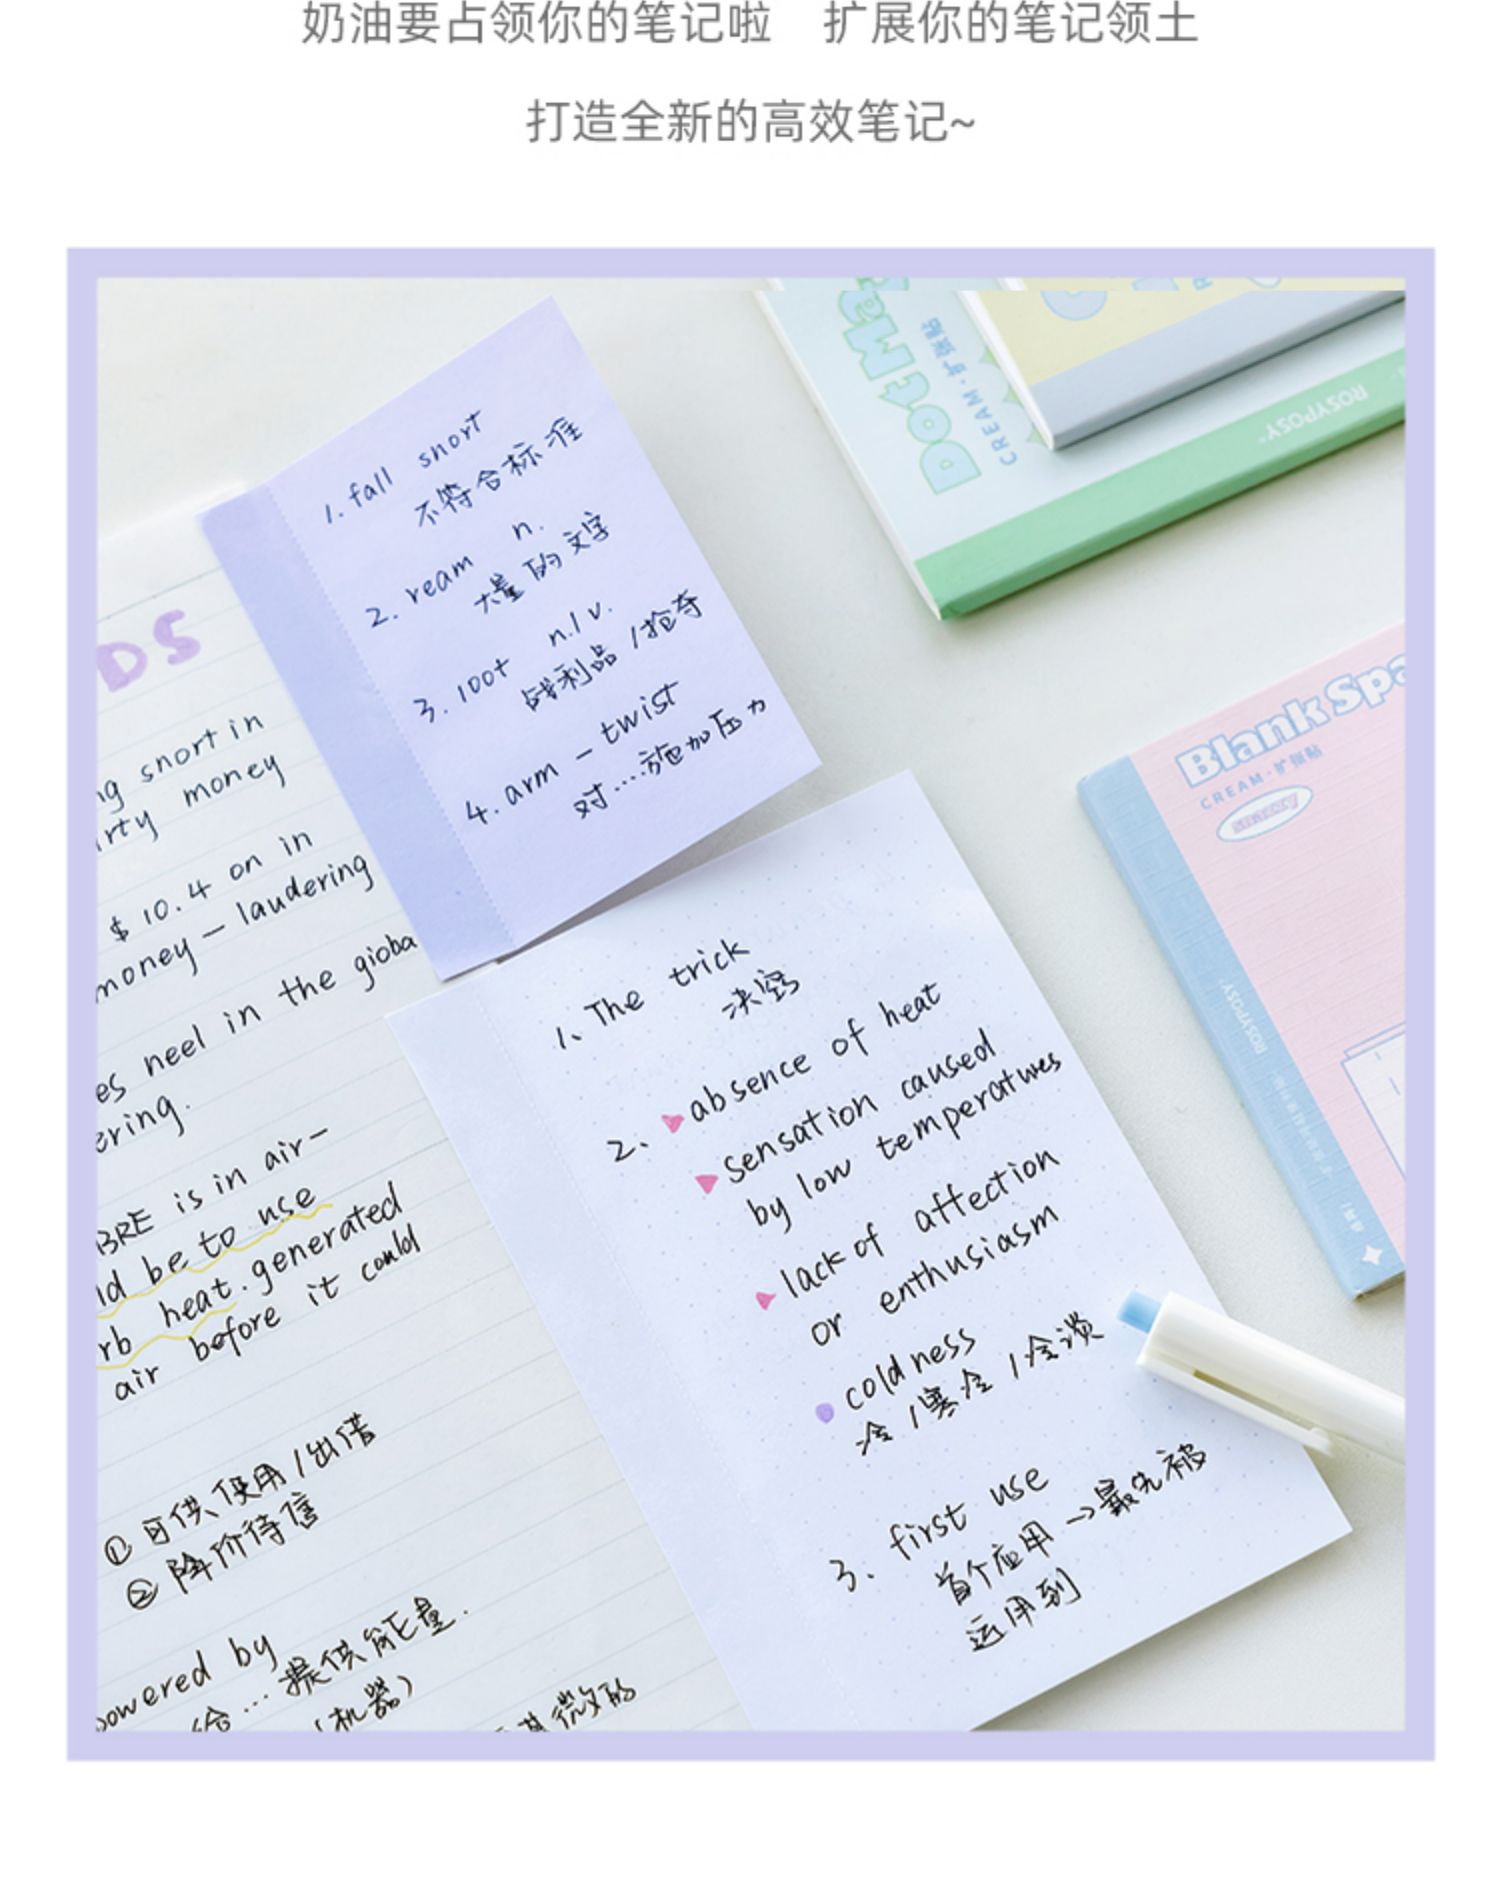 奶油要占领你的笔记啦 扩展你的笔记领土
打造全新的高效笔记~
Dot Ma
CREAM·扩张贴
ROSYPOSY
1. fall snort
不符合标准
2. ream n.
大量的文字
3. loot n./v.
战利品/抢夺
4. arm-twist
对....施加压力
Blank Spa
CREAM·扩张贴
ROSYPOSY
DS
ng snort in
rty money
$10.4 on in
money-laudering
es neel in the gioba
ering.
BRE is in air-
ld be to use
rb heat.generated
air before it could
①可供使用/出借
②降价待信
powered by
给...提供能量.
(机器)
微的
1、The trick
决窍
2、absence of heat
sensation caused
by low temperatures
lack of affection
or enthusiasm
coldness
冷/寒冷/冷淡
3、first use
首个应用→最先被
运用到